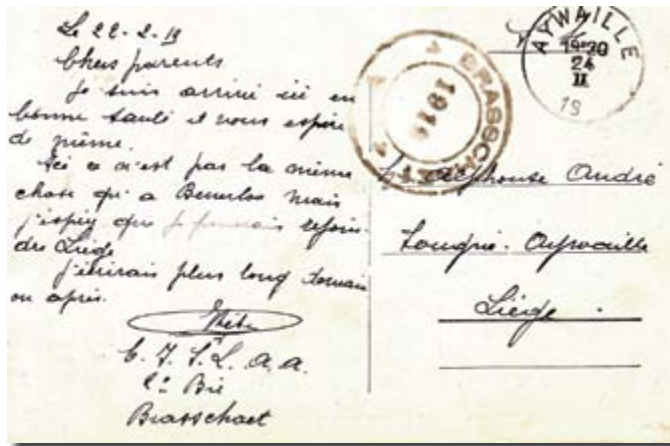 Le 22-2-19
Chers parents
Je suis arrivé ici en
bonne santé et vous espère
de même.
Ici ce n'est pas la même
chose qu'a Beverloo mais
j'espère que je pourrais rejoin-
dre Liège
J'écrirais plus long demain
ou après.
C. I. S. L. A. A.
2e Bie
Brasschaet
BRASSCHAET
1919
AYWAILLE
19-20
24
II
19
Alphonse André
Aywaille
Liège.